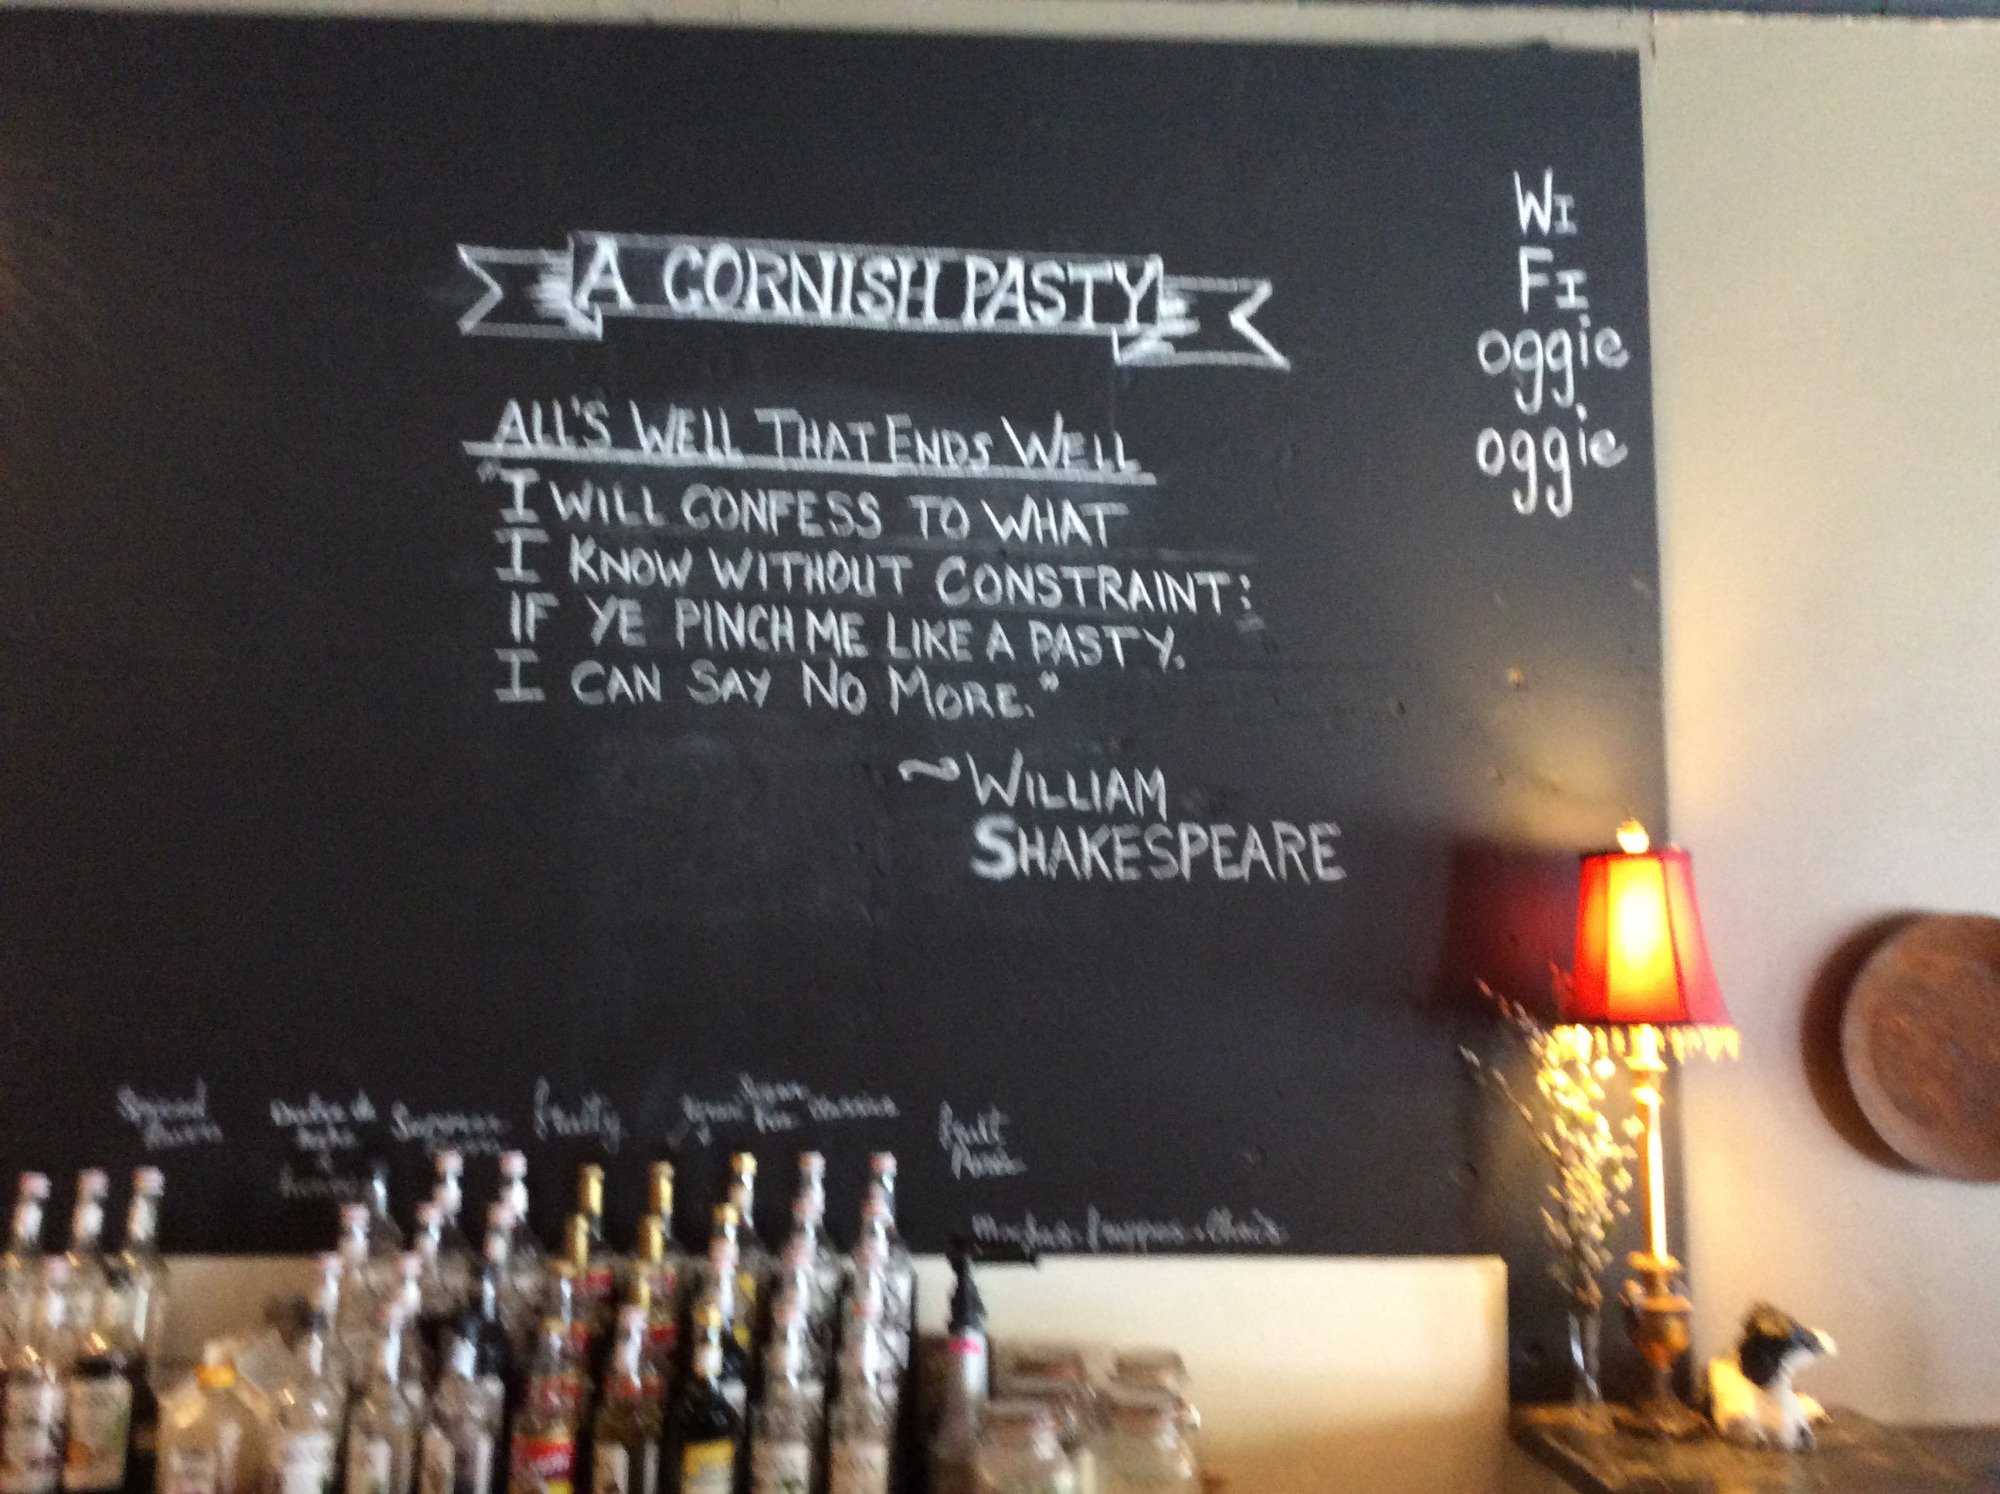 A CORNISH PASTY
ALL'S WELL THAT ENDS WELL
"I WILL CONFESS TO WHAT
I KNOW WITHOUT CONSTRAINT:
IF YE PINCH ME LIKE A PASTY.
I CAN SAY NO MORE."
~WILLIAM
SHAKESPEARE
WI
FI
oggie
oggie
Fruity